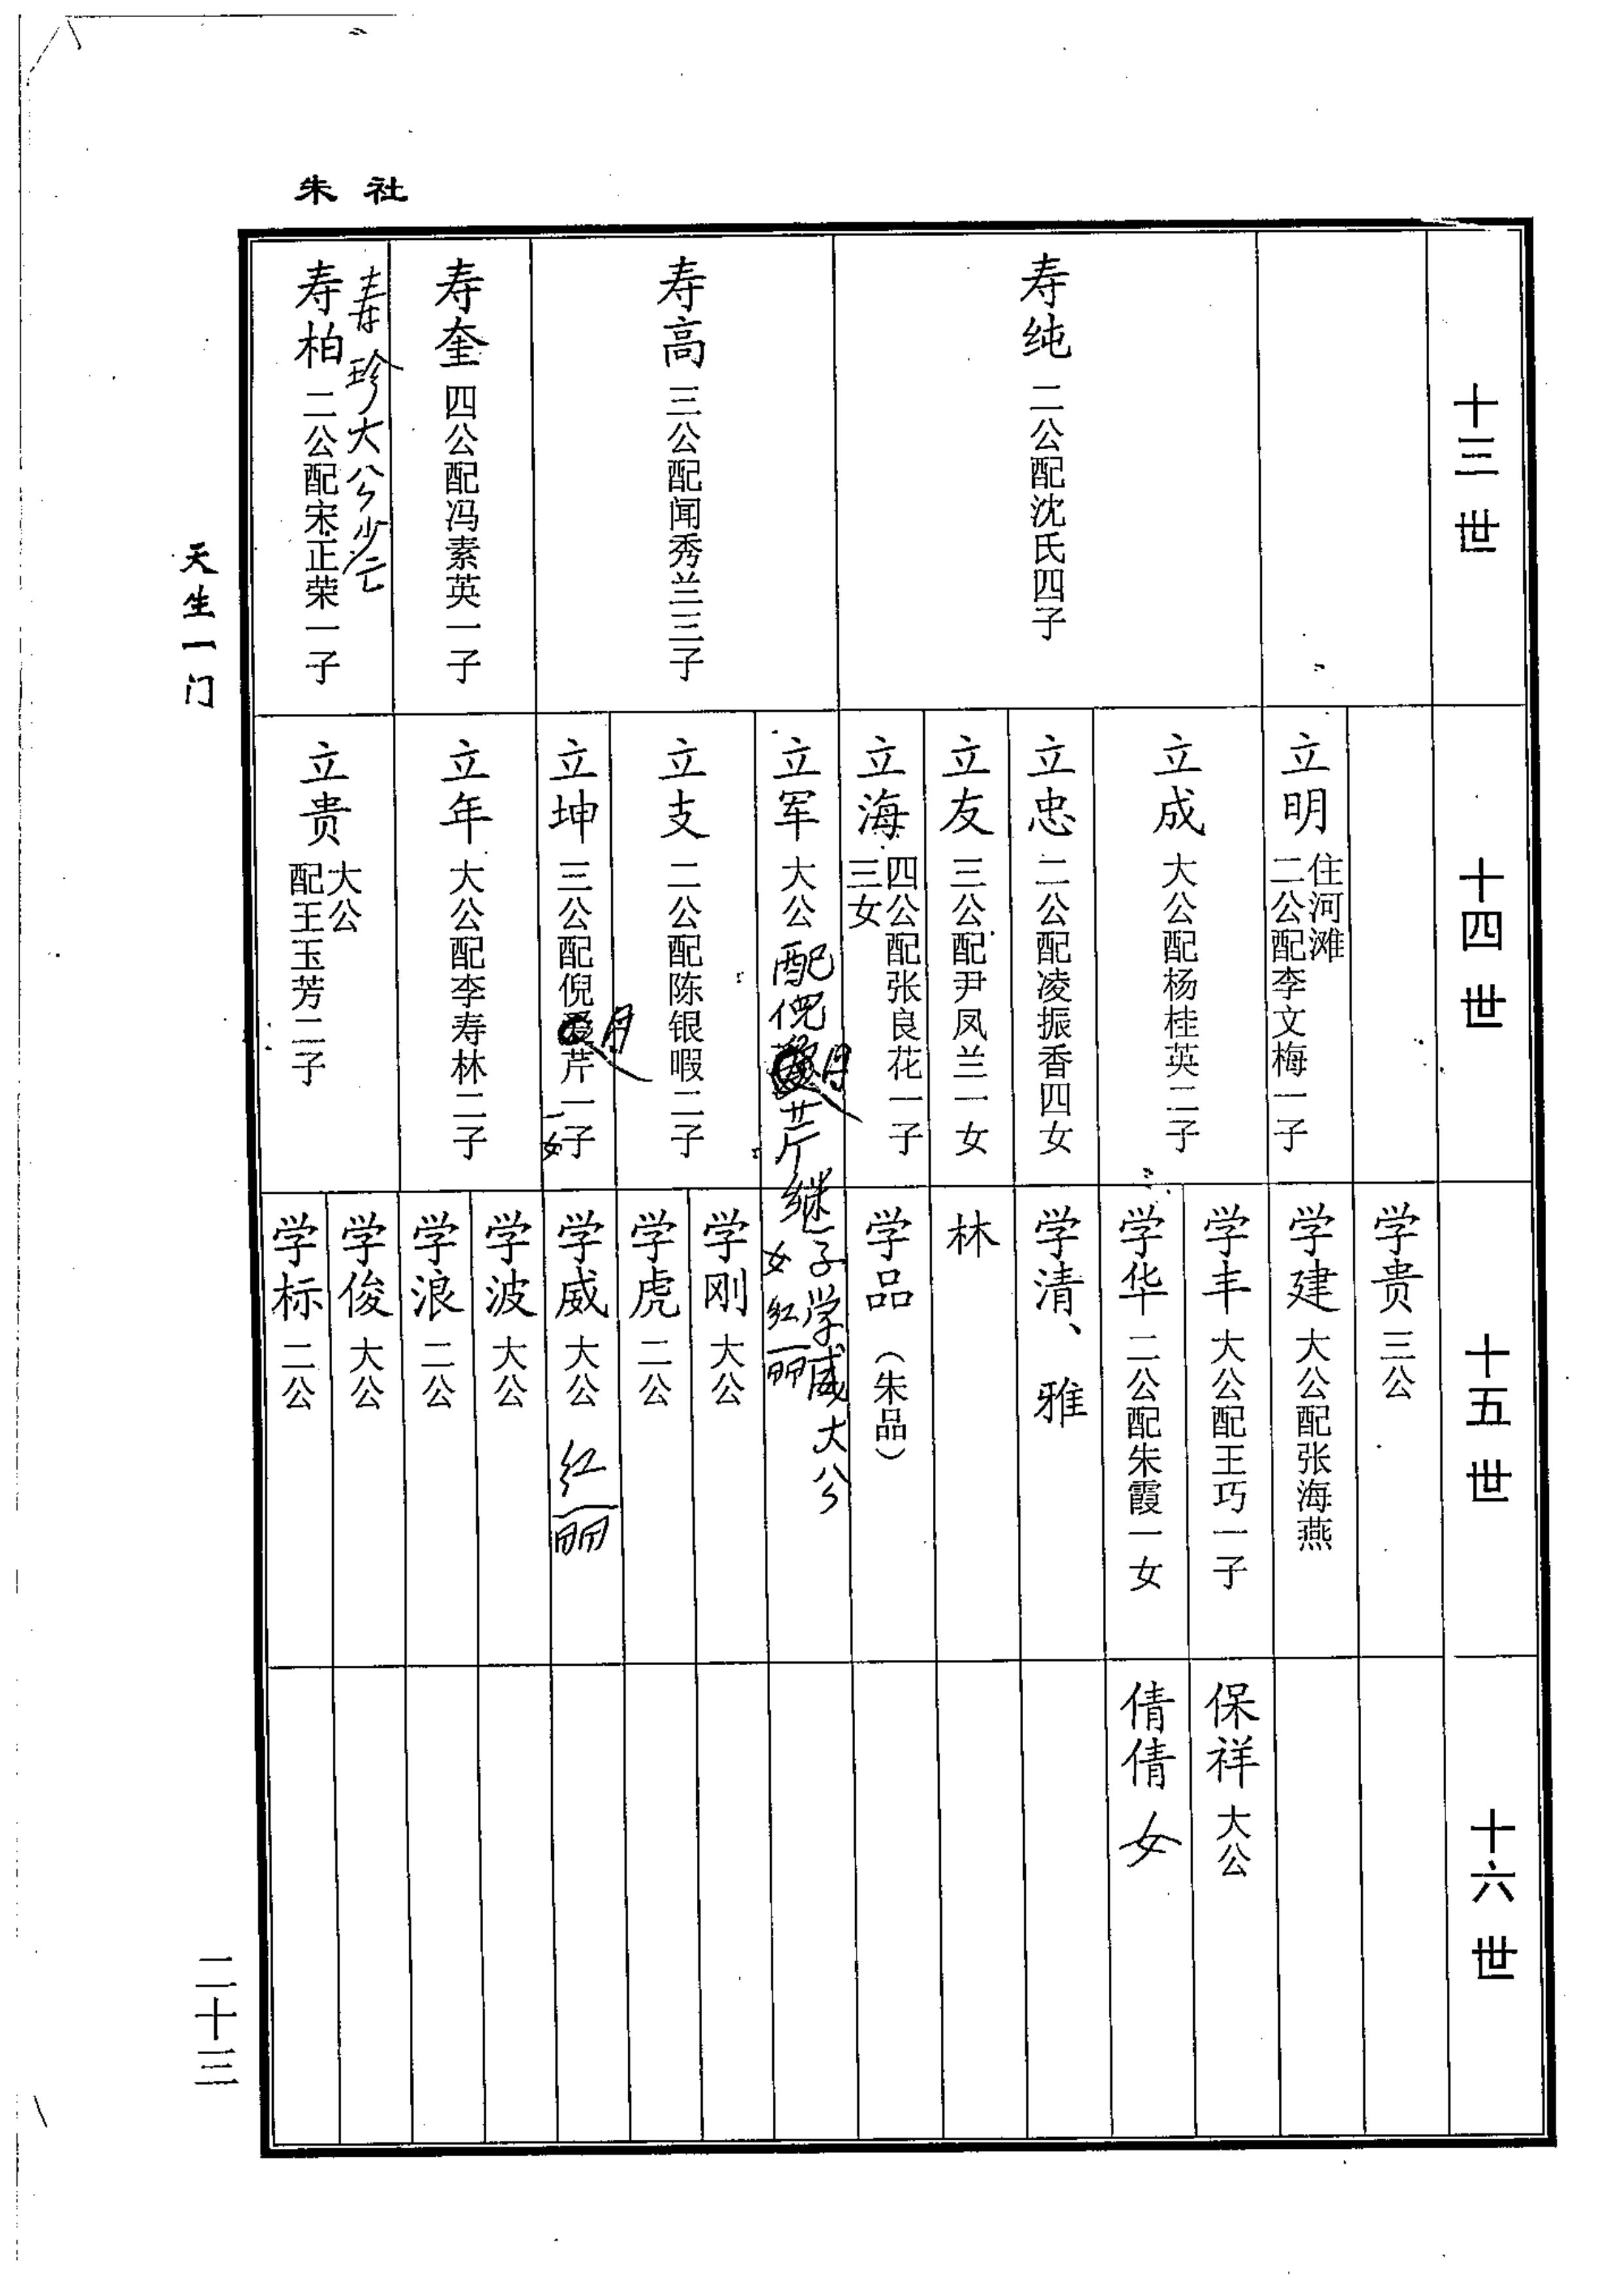 朱 社
十三世
寿纯 二公配沈氏四子
寿高 三公配闻秀兰三子
寿奎 四公配冯素英一子
寿珍大公少亡
寿柏 二公配宋正荣一子
十四世
立明 住河滩
二公配李文梅一子
立成 大公配杨桂英二子
立忠 二公配凌振香四女
立友 三公配尹凤兰一女
立海 四公配张良花一子
三女
立军 大公 配倪月芹继子学威大公
女红丽
立支 二公配陈银暇二子
立坤 三公配倪月芹一子
一女
立年 大公配李寿林二子
立贵 大公
配王玉芳二子
十五世
学贵 三公
学建 大公配张海燕
学丰 大公配王巧一子
学华 二公配朱霞一女
学清、雅
林
学品（朱品）
学刚 大公
学虎 二公
学威 大公 红丽
学波 大公
学浪 二公
学俊 大公
学标 二公
十六世
保祥 大公
倩倩 女
天生一门
二十三